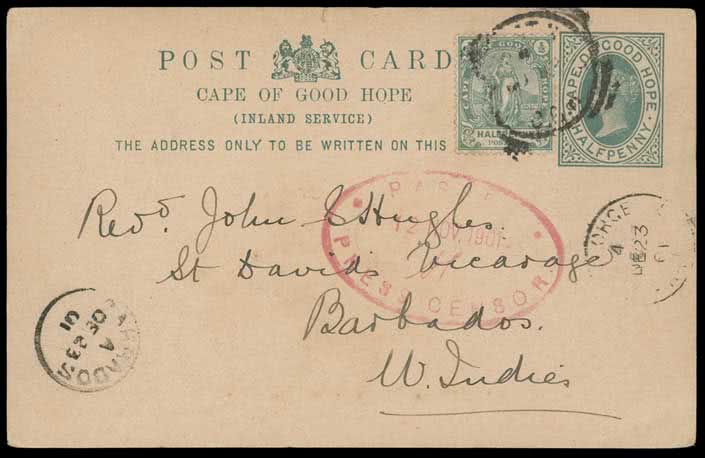 POST CARD
CAPE OF GOOD HOPE
(INLAND SERVICE)
THE ADDRESS ONLY TO BE WRITTEN ON THIS
½
HALF
CAPE OF GOOD HOPE
HALFPENNY
Revd. John E Hughes.
St Davids Vicarage
Barbados.
W. Indies
12 NOV. 1901
PRESS CENSOR
ORGE
DE 23
01
BARBADOS
A
DE 23
01